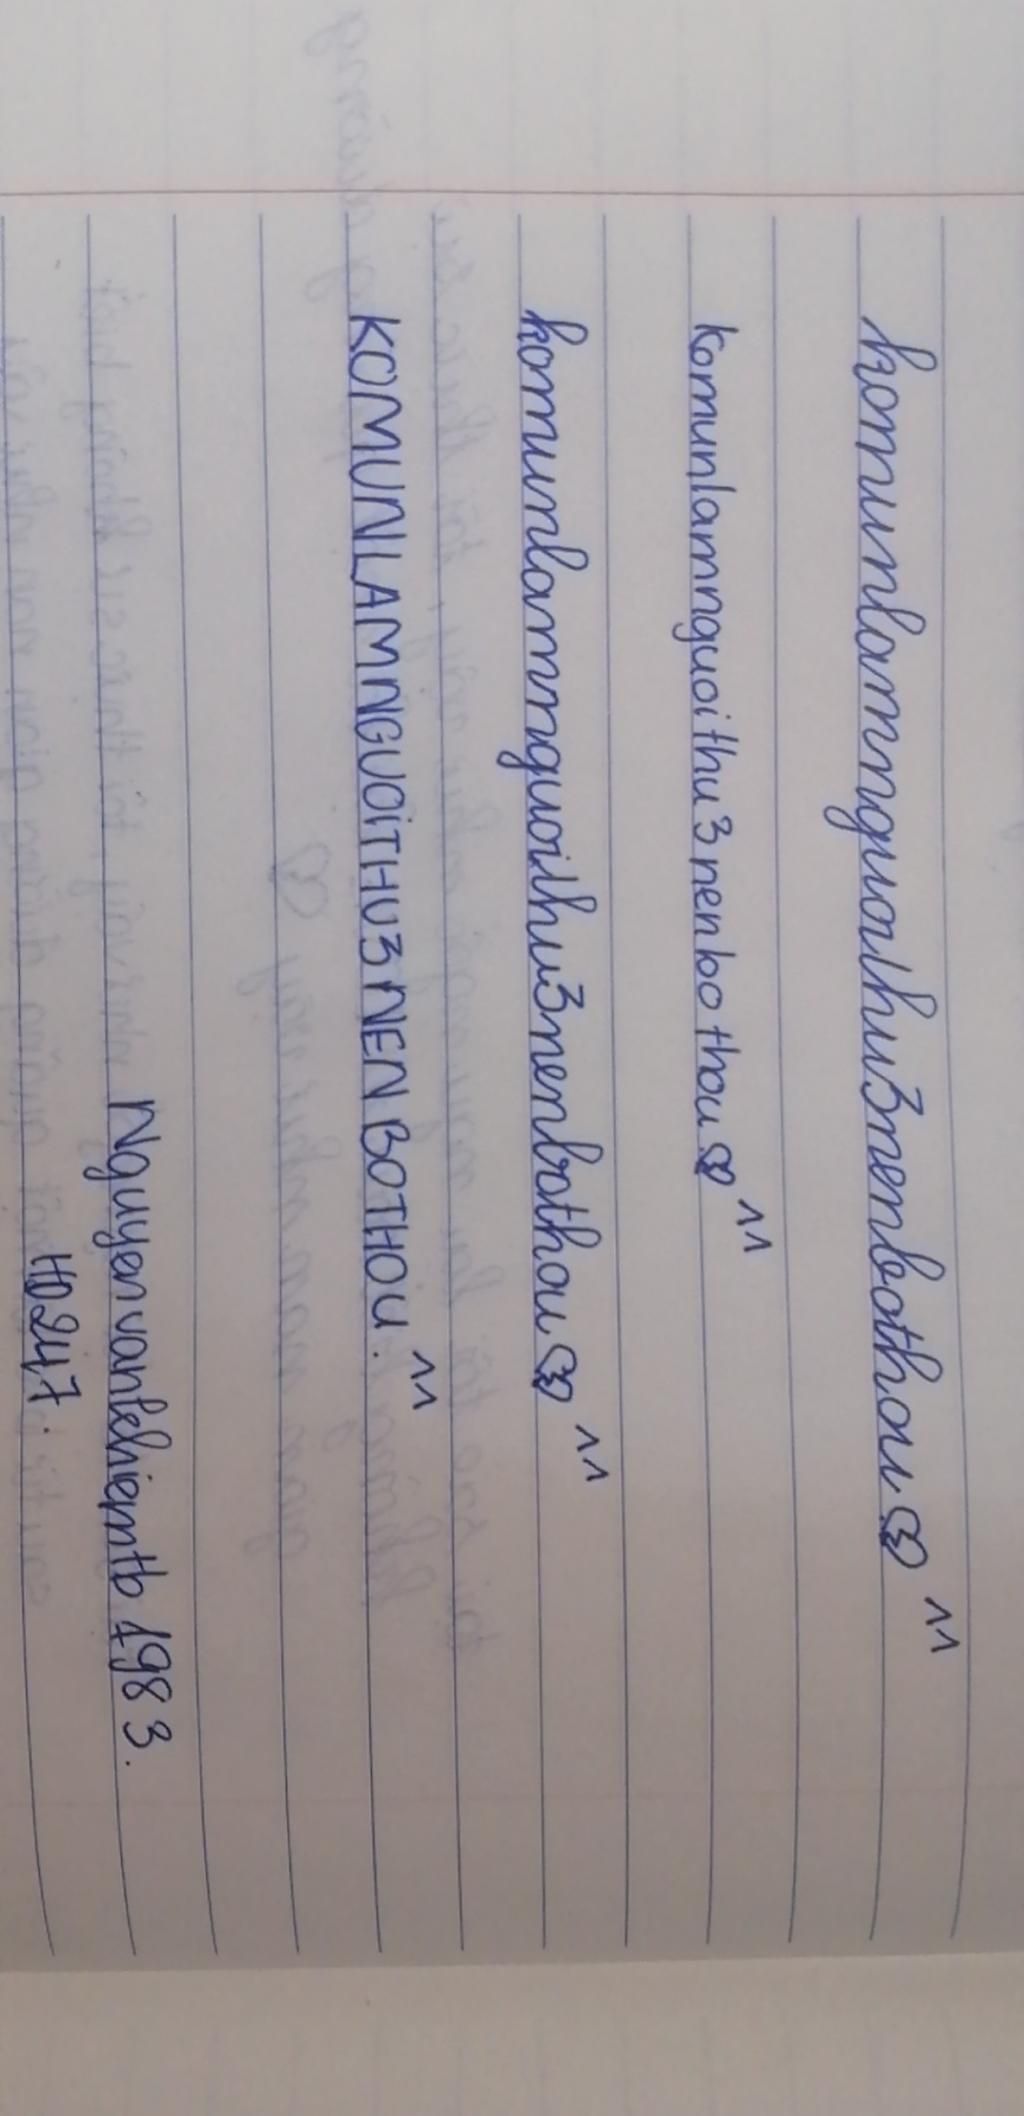 komunlamnguoithu3nenbothou ^^
komunlamnguoithu3nenbothou ^^
komunlamnguoithu3nenbothou ^^
KOMUNLAMNGUOiTHU3NENBOTHOU. ^^
Nguyenvankhiemtb1983.
HD247.